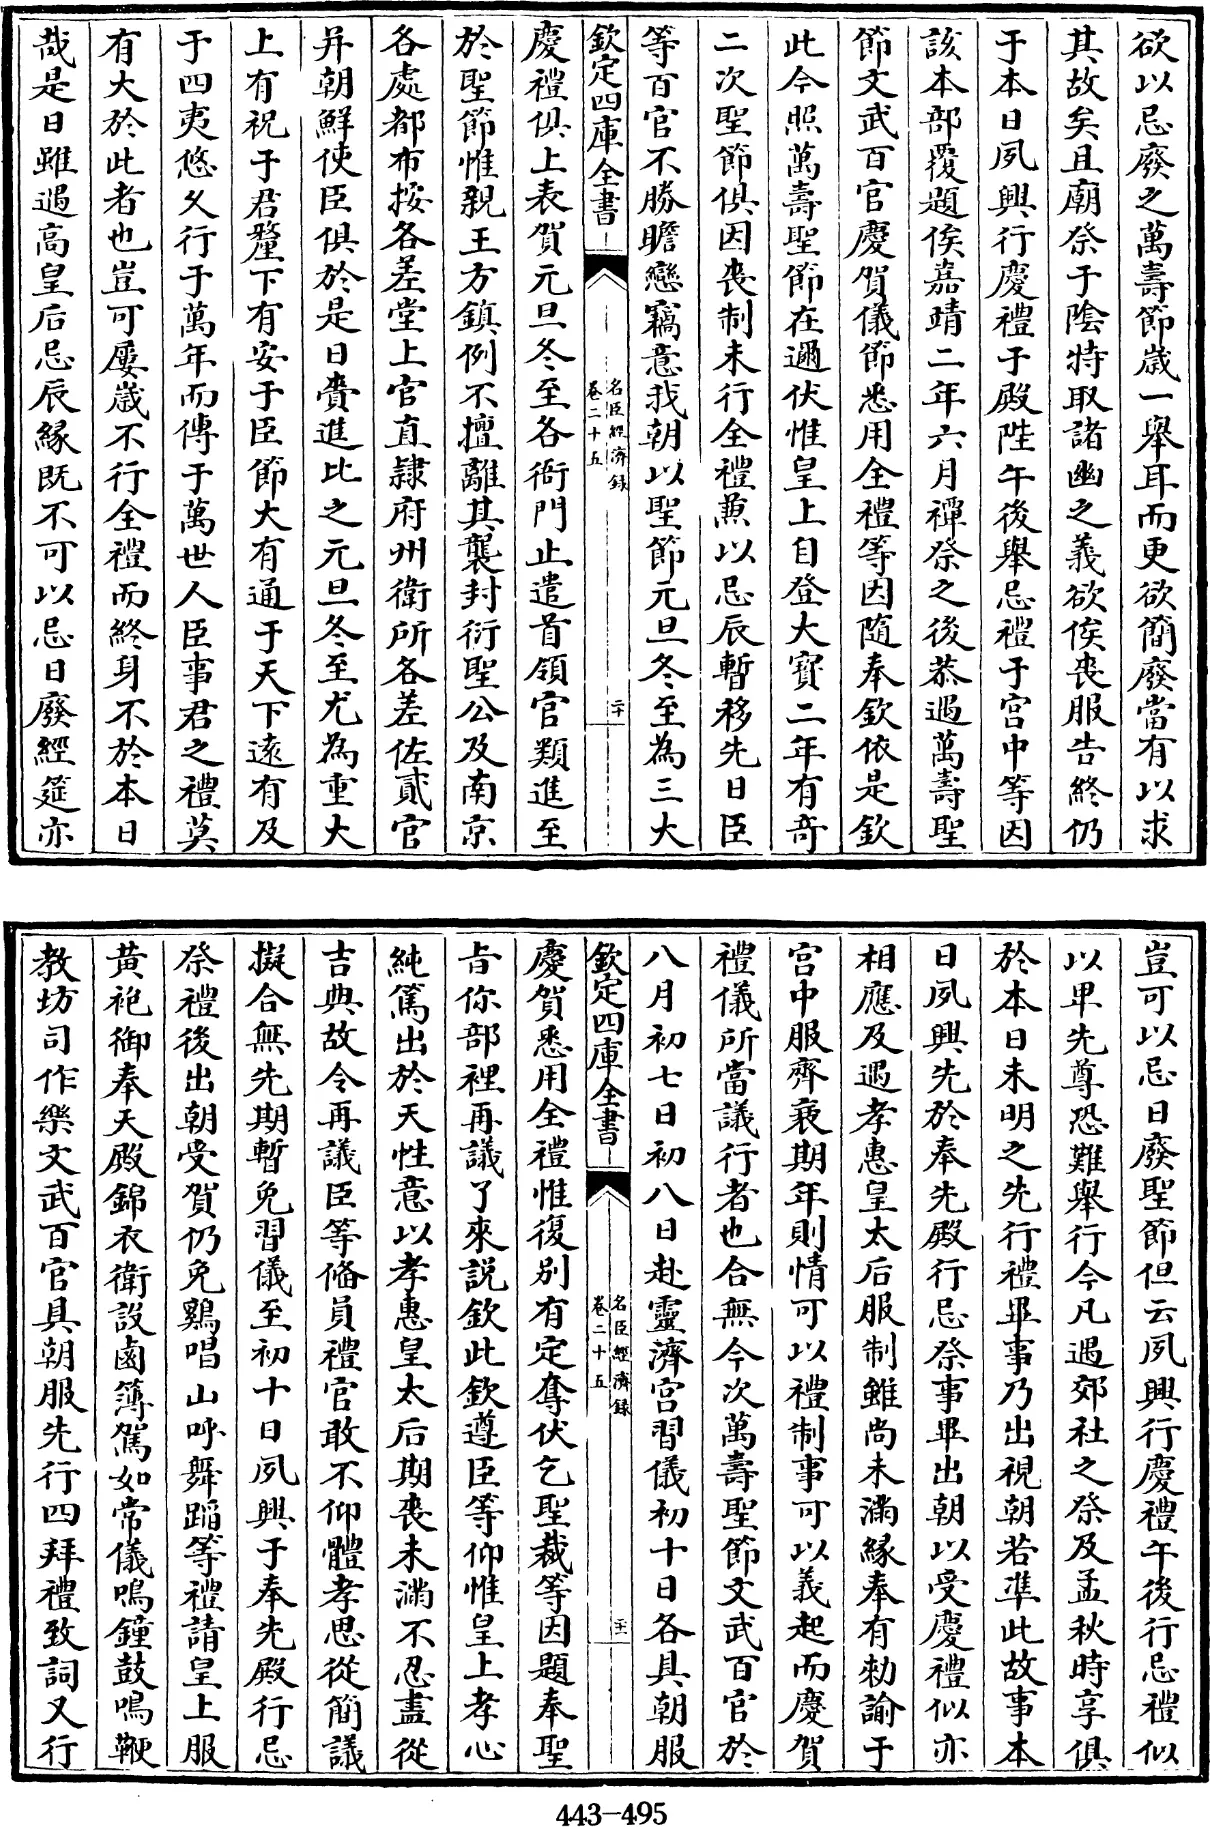 欲以忌廢之萬壽節歲一舉耳而更欲簡廢當有以求
其故矣且廟祭于陰特取諸幽之義欲俟喪服告終仍
于本日夙興行慶禮于殿陛午後舉忌禮于宮中等因
該本部覆題俟嘉靖二年六月禫祭之後恭遇萬壽聖
節文武百官慶賀儀節悉用全禮等因隨奉欽依是欽
此今照萬壽聖節在邇伏惟皇上自登大寶二年有竒
二次聖節俱因喪制未行全禮兼以忌辰暫移先日臣
等百官不勝瞻戀竊意我朝以聖節元旦冬至為三大
欽定四庫全書
名臣經濟録
卷二十五
二十
慶禮俱上表賀元旦冬至各衙門止遣首領官類進至
於聖節惟親王方鎮例不擅離其襲封衍聖公及南京
各處都布按各差堂上官直隸府州衛所各差佐貳官
并朝鮮使臣俱於是日賫進比之元旦冬至尤為重大
上有祝于君釐下有安于臣節大有通于天下逺有及
于四夷悠久行于萬年而傳于萬世人臣事君之禮莫
有大於此者也豈可屢歲不行全禮而終身不於本日
哉是日雖遇高皇后忌辰緣既不可以忌日廢經筵亦
豈可以忌日廢聖節但云夙興行慶禮午後行忌禮似
以卑先尊恐難舉行今凡遇郊社之祭及孟秋時享俱
於本日未明之先行禮畢事乃出視朝若準此故事本
日夙興先於奉先殿行忌祭事畢出朝以受慶禮似亦
相應及遇孝惠皇太后服制雖尚未滿緣奉有勅諭于
宮中服齊衰期年則情可以禮制事可以義起而慶賀
禮儀所當議行者也合無今次萬壽聖節文武百官於
八月初七日初八日赴靈濟宮習儀初十日各具朝服
欽定四庫全書
名臣經濟録
卷二十五
二十一
慶賀悉用全禮惟復別有定奪伏乞聖裁等因題奉聖
旨你部裡再議了來説欽此欽遵臣等仰惟皇上孝心
純篤出於天性意以孝惠皇太后期喪未滿不忍盡從
吉典故令再議臣等備員禮官敢不仰體孝思從簡議
擬合無先期暫免習儀至初十日夙興于奉先殿行忌
祭禮後出朝受賀仍免鷄唱山呼舞蹈等禮請皇上服
黄袍御奉天殿錦衣衛設鹵簿駕如常儀鳴鐘鼓鳴鞭
教坊司作樂文武百官具朝服先行四拜禮致詞又行
443-495